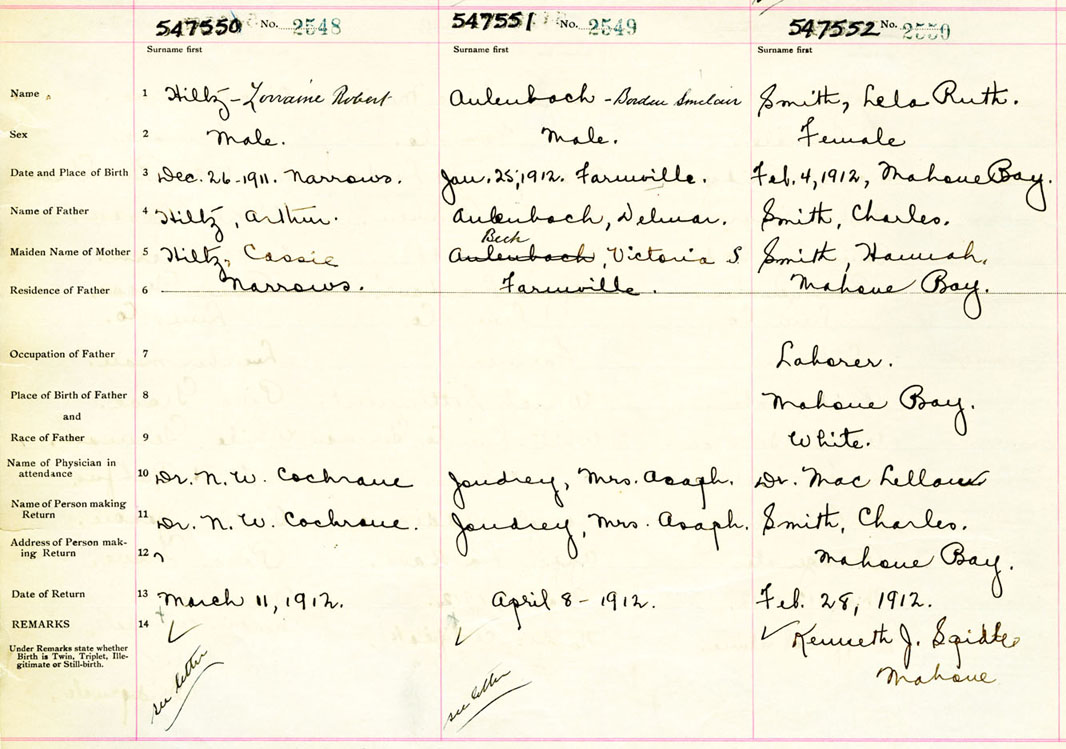 547550 No. 2548 547551 No. 2549 547552 No. 2550
Surname first Surname first Surname first
Name 1 Hiltz - Lorraine Robert Aulenbach - Borden Sinclair Smith, Lela Ruth.
Sex 2 Male. Male. Female
Date and Place of Birth 3 Dec. 26 - 1911. Narrows. Jan. 25, 1912. Farmville. Feb. 4, 1912, Mahone Bay.
Name of Father 4 Hiltz, Arthur. Aulenbach, Delmar. Smith, Charles.
Beck
Maiden Name of Mother 5 Hiltz, Cassie Aulenbach, Victoria S. Smith, Hannah.
Residence of Father 6 Narrows. Farmville. Mahone Bay.
Occupation of Father 7 Laborer.
Place of Birth of Father 8 Mahone Bay.
and
Race of Father 9 White.
Name of Physician in
attendance 10 Dr. N. W. Cochrane Joudrey, Mrs. Asaph. Dr. Mac Lellan
Name of Person making
Return 11 Dr. N. W. Cochrane. Joudrey, Mrs. Asaph. Smith, Charles.
Address of Person mak-
ing Return 12 Mahone Bay.
Date of Return 13 March 11, 1912. April 8 - 1912. Feb. 28, 1912.
REMARKS 14 Kenneth J.
Under Remarks state whether
Birth is Twin, Triplet, Ille-
gitimate or Still-birth.
Mahone
see letter see letter